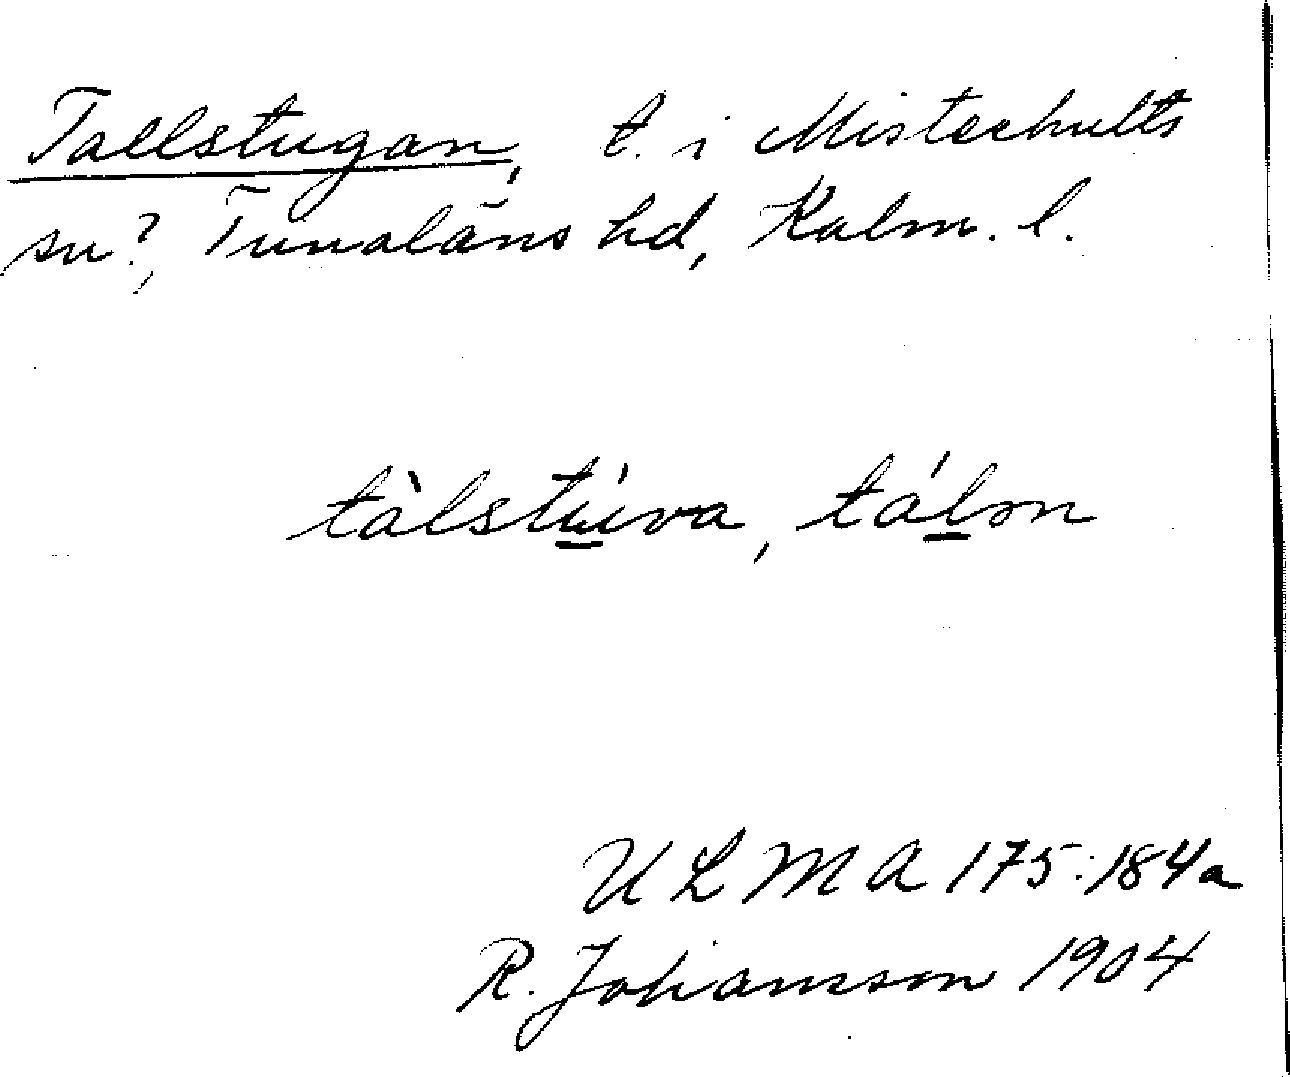 Tallstugan, t. i Misterhults
sn?, Tunaläns hd, Kalm. l.
tàlstúva, táln
ULMA 175:184a
R. Johansson 1904